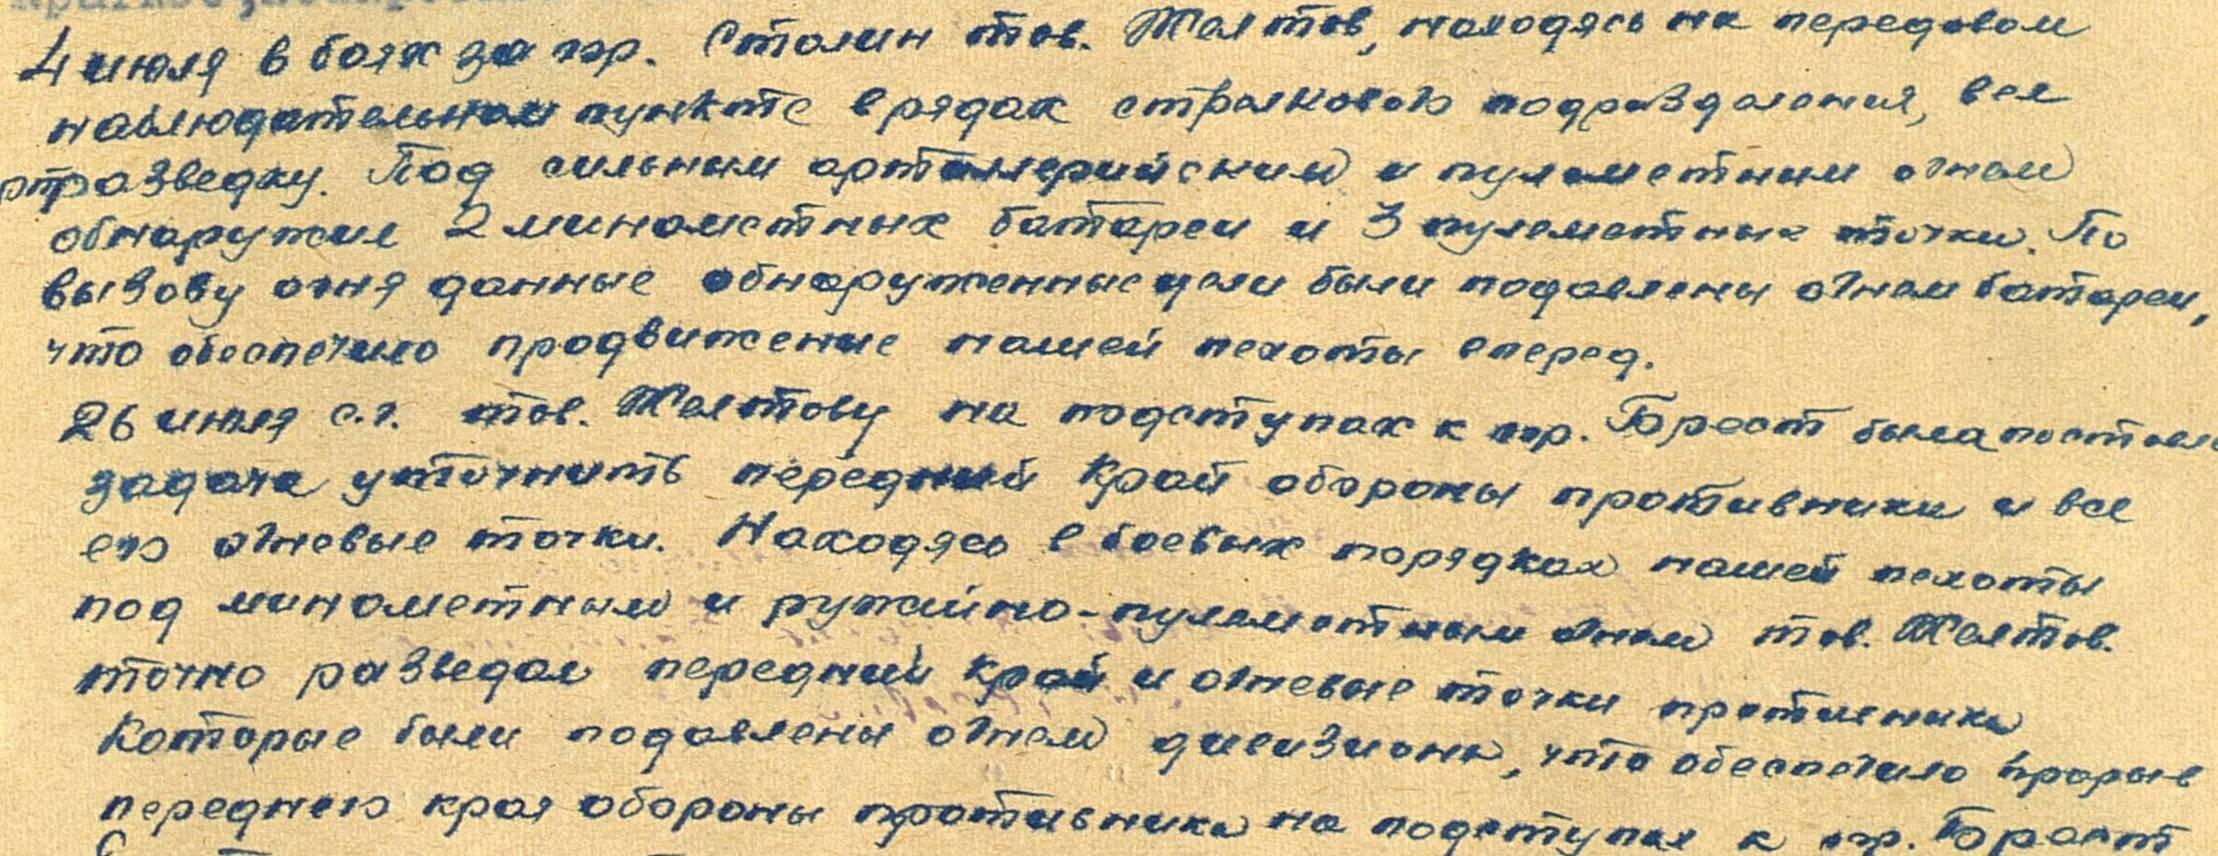 4 июля в боях за гор. Столин тов. Желтов, находясь на передовом
наблюдательном пункте в рядах стрелкового подразделения, вел
артразведку. Под сильным артиллерийским и пулеметным огнем
обнаружил 2 минометных батареи и 3 пулеметных точки. По
вызову огня данные обнаруженные цели были подавлены огнем батареи,
что обеспечило продвижение нашей пехоты вперед.
26 июля с.г. тов. Желтову на подступах к гор. Брест была поставлена
задача уточнить передний край обороны противника и все
его огневые точки. Находясь в боевых порядках нашей пехоты
под минометным и ружейно-пулеметным огнем тов. Желтов.
точно разведал передний край и огневые точки противника
Которые были подавлены огнем дивизиона, что обеспечило прорыв
переднего края обороны противника на подступах к гор. Брест